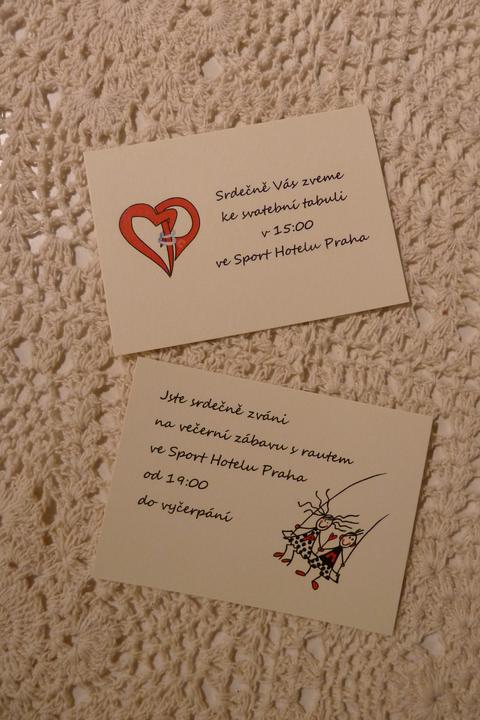 Srdečně Vás zveme
ke svatební tabuli
v 15:00
ve Sport Hotelu Praha
Jste srdečně zváni
na večerní zábavu s rautem
ve Sport Hotelu Praha
od 19:00
do vyčerpání